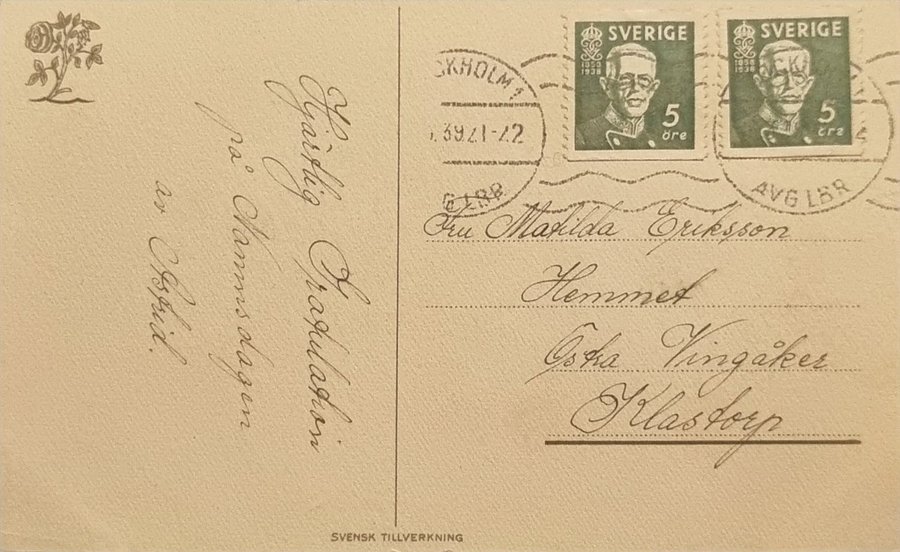 Hjärtlig Gratulation
på Namnsdagen
av Astrid.
SVERIGE
1858
1938
5
öre
SVERIGE
1858
1938
5
öre
CKHOLM 1
.39 21-22
AVG LBR
Fru Matilda Eriksson
Hemmet
Östra Vingåker
Klastorp
SVENSK TILLVERKNING